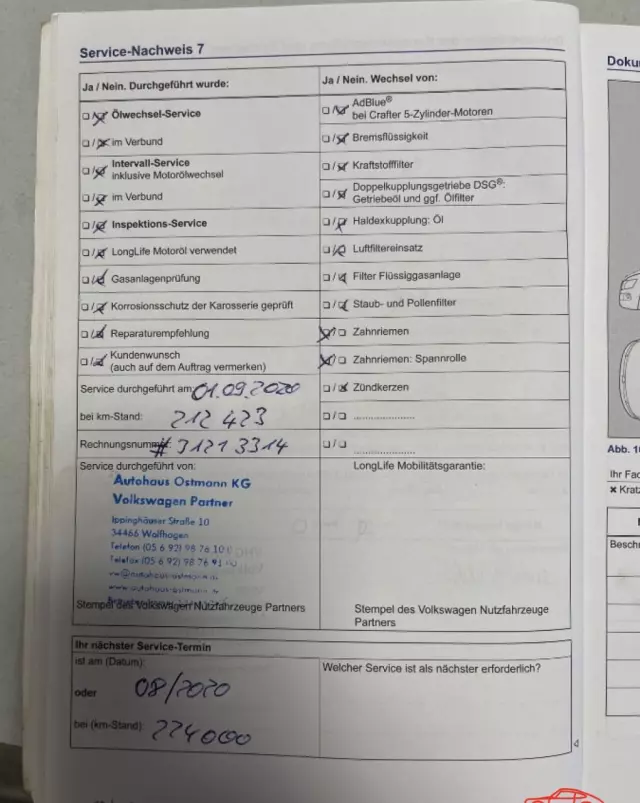 Service-Nachweis 7
Ja / Nein. Durchgeführt wurde:
Ölwechsel-Service
im Verbund
Intervall-Service
inklusive Motorölwechsel
im Verbund
Inspektions-Service
LongLife Motoröl verwendet
Gasanlagenprüfung
Korrosionsschutz der Karosserie geprüft
Reparaturempfehlung
Kundenwunsch
(auch auf dem Auftrag vermerken)
Service durchgeführt am: 01.09.2020
bei km-Stand: 212 423
Rechnungsnummer: # 3121 3314
Service durchgeführt von:
Autohaus Ostmann KG
Volkswagen Partner
Ippinghäuser Straße 10
34466 Wolfhagen
Telefon (05 6 92) 98 76 10
Telefax (05 6 92) 98 76
Stempel des Volkswagen Nutzfahrzeuge Partners
Ja / Nein. Wechsel von:
AdBlue®
bei Crafter 5-Zylinder-Motoren
Bremsflüssigkeit
Kraftstofffilter
Doppelkupplungsgetriebe DSG®:
Getriebeöl und ggf. Ölfilter
Haldexkupplung: Öl
Luftfiltereinsatz
Filter Flüssiggasanlage
Staub- und Pollenfilter
Zahnriemen
Zahnriemen: Spannrolle
Zündkerzen
LongLife Mobilitätsgarantie:
Stempel des Volkswagen Nutzfahrzeuge
Partners
Ihr nächster Service-Termin
ist am (Datum): 08/2020
oder
bei (km-Stand): 224000
Welcher Service ist als nächster erforderlich?
4
Abb. 10
Ihr Fac
× Kratz
Beschr